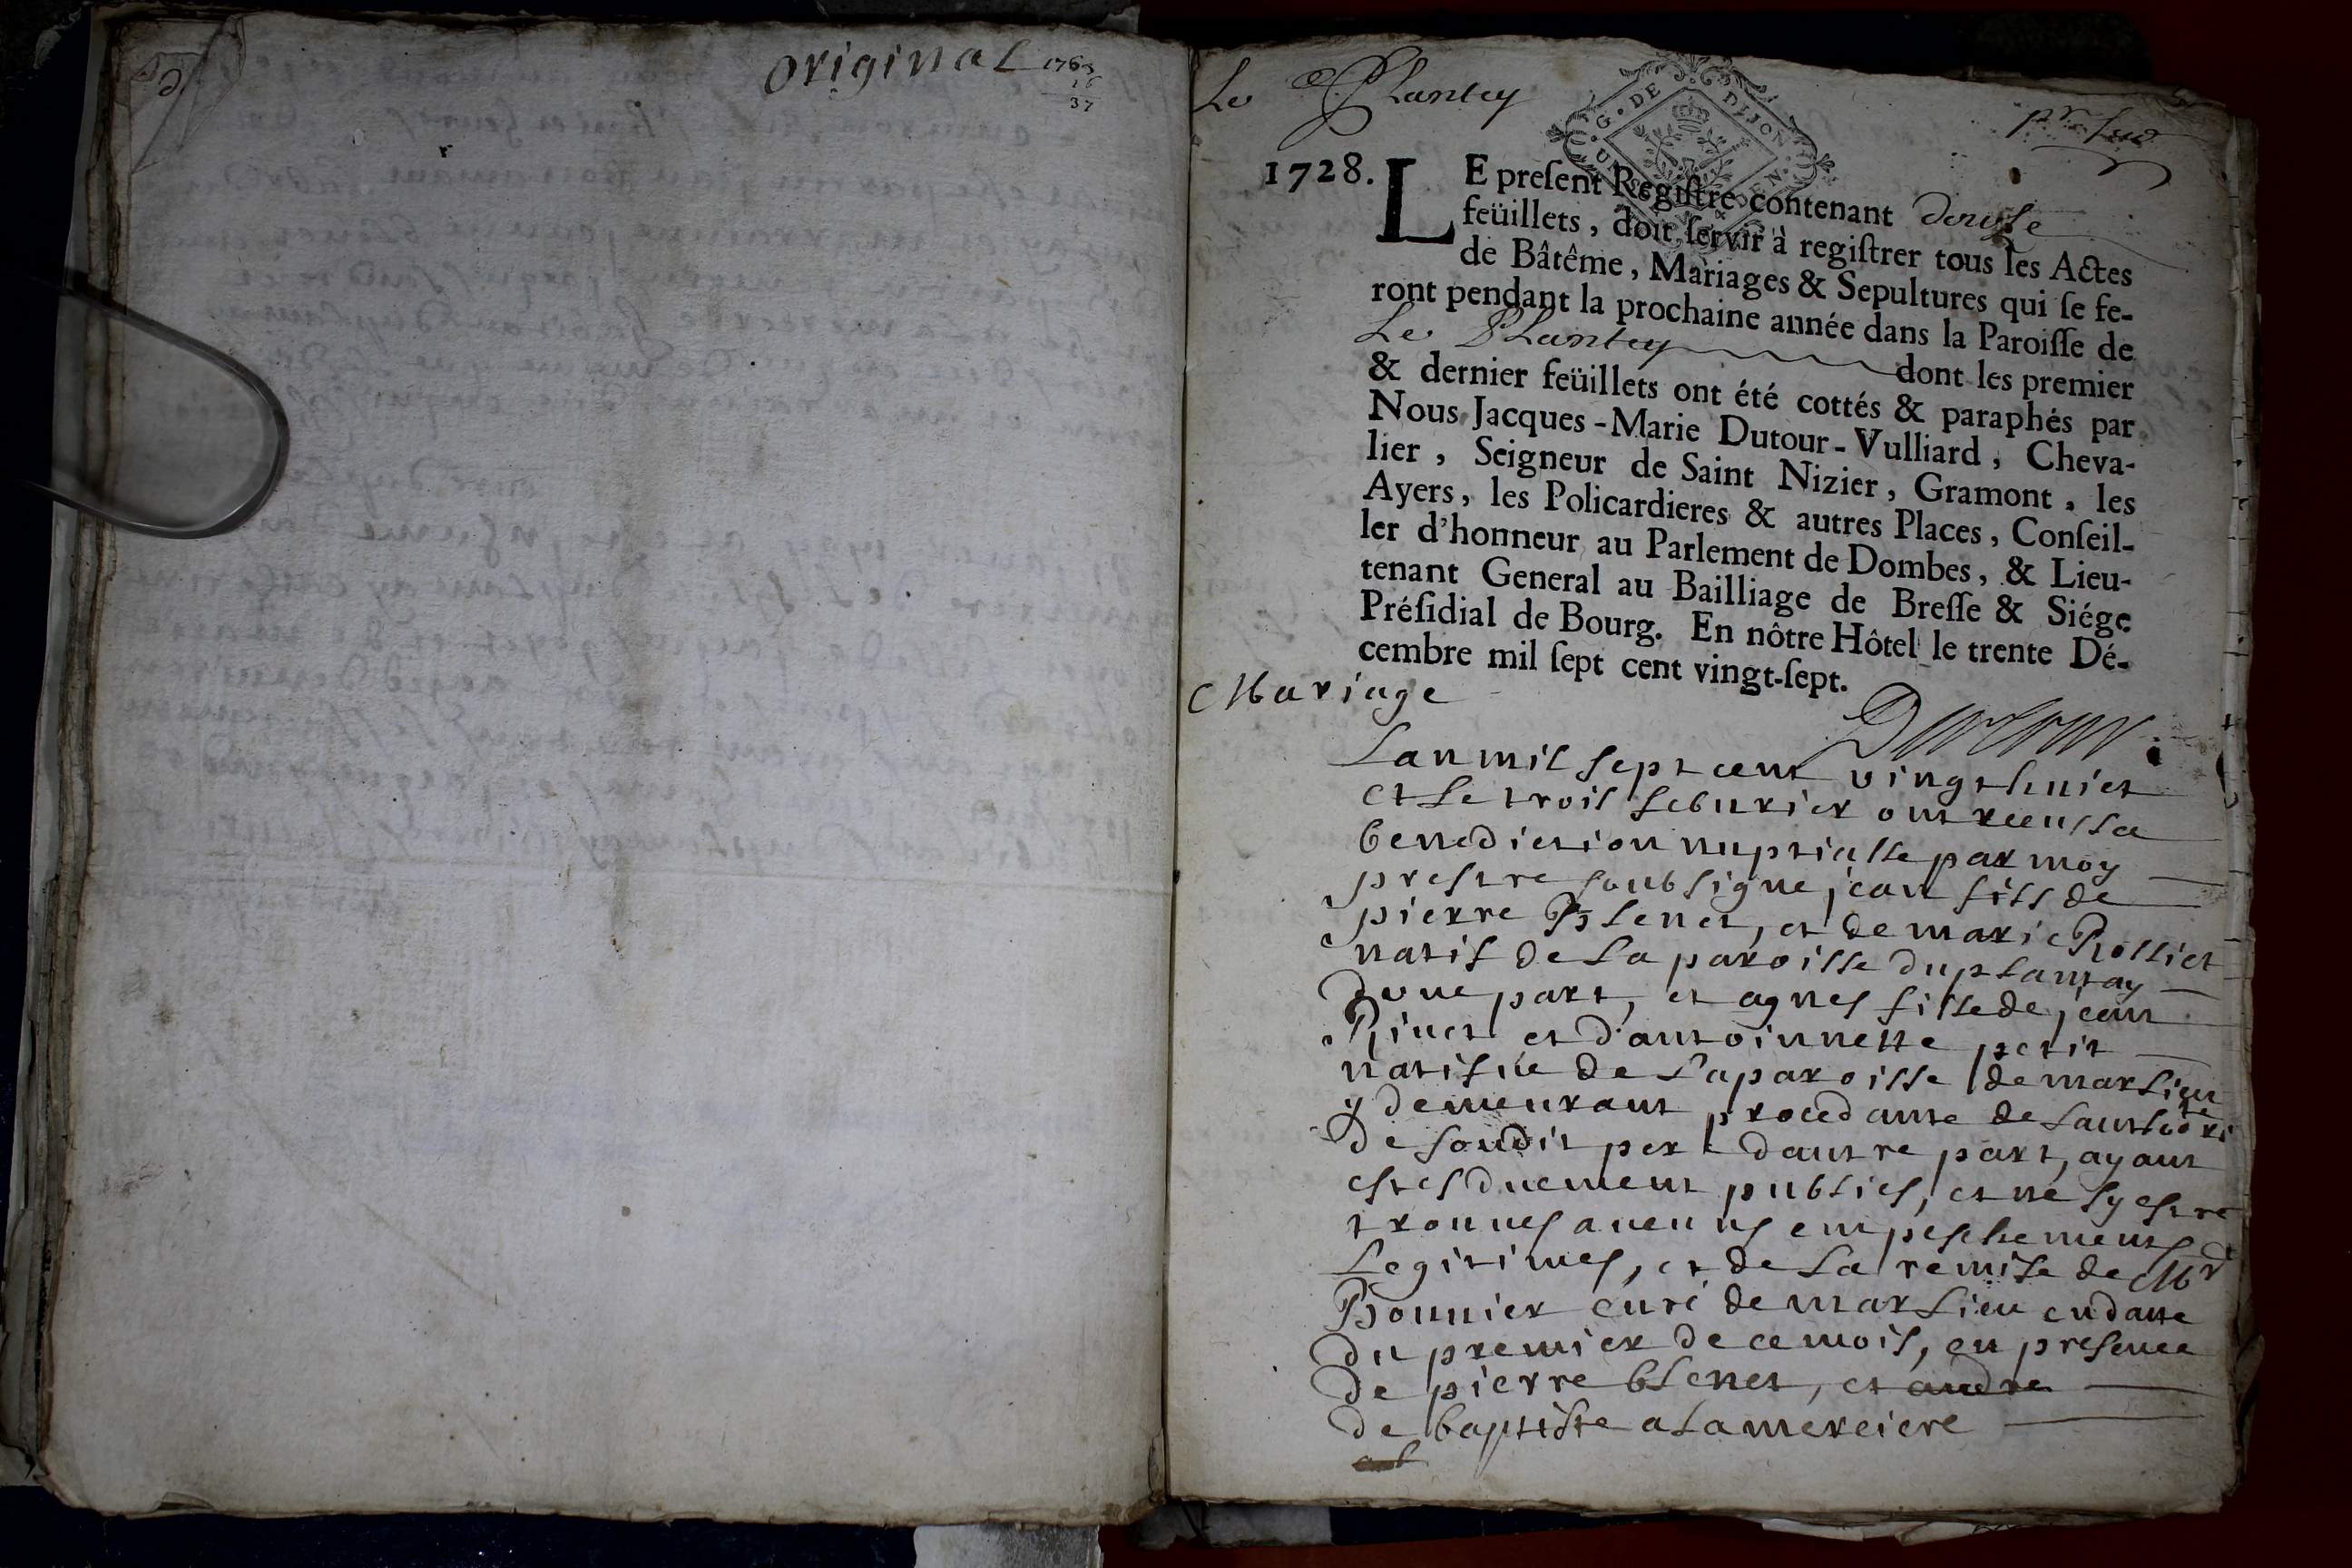 original 1765
37
Le Plantey
G. DE DIJON
1728. LE preſent Regiſtre contenant douſe
feüillets, doit ſervir à regiſtrer tous les Actes
de Bâtême, Mariages & Sepultures qui ſe fe-
ront pendant la prochaine année dans la Paroiſſe de
Le Plantey dont les premier
& dernier feüillets ont été cottés & paraphés par
Nous Jacques-Marie Dutour-Vulliard, Cheva-
lier, Seigneur de Saint Nizier, Gramont, les
Ayers, les Policardieres & autres Places, Conſeil-
ler d'honneur au Parlement de Dombes, & Lieu-
tenant General au Bailliage de Breſſe & Siége
Préſidial de Bourg. En nôtre Hôtel le trente Dé-
cembre mil ſept cent vingt-ſept.
Mariage
Dutour
Lan mil sept cent vingt huict
et le trois feburier ont receu la
benediction nuptialle par moy
prestre soubsigne jean fils de
pierre Blenet, et de marie Rolliet
natif de la paroisse du plantay
dune part, et agnes fille de jean
Rivet et d'antoinnette petit
natifue de la paroisse de marlieu
y demeurant procedante de lauthorite
de soudit pere dautre part, ayant
estes duement publies, et ne sy estre
trouues aucuns empeschements
Legitimes, et de la remise de Mr
Bonnier curé de marlieu en datte
du premier de ce mois, en presence
de pierre blenet, et andre
de baptiste a la merciere